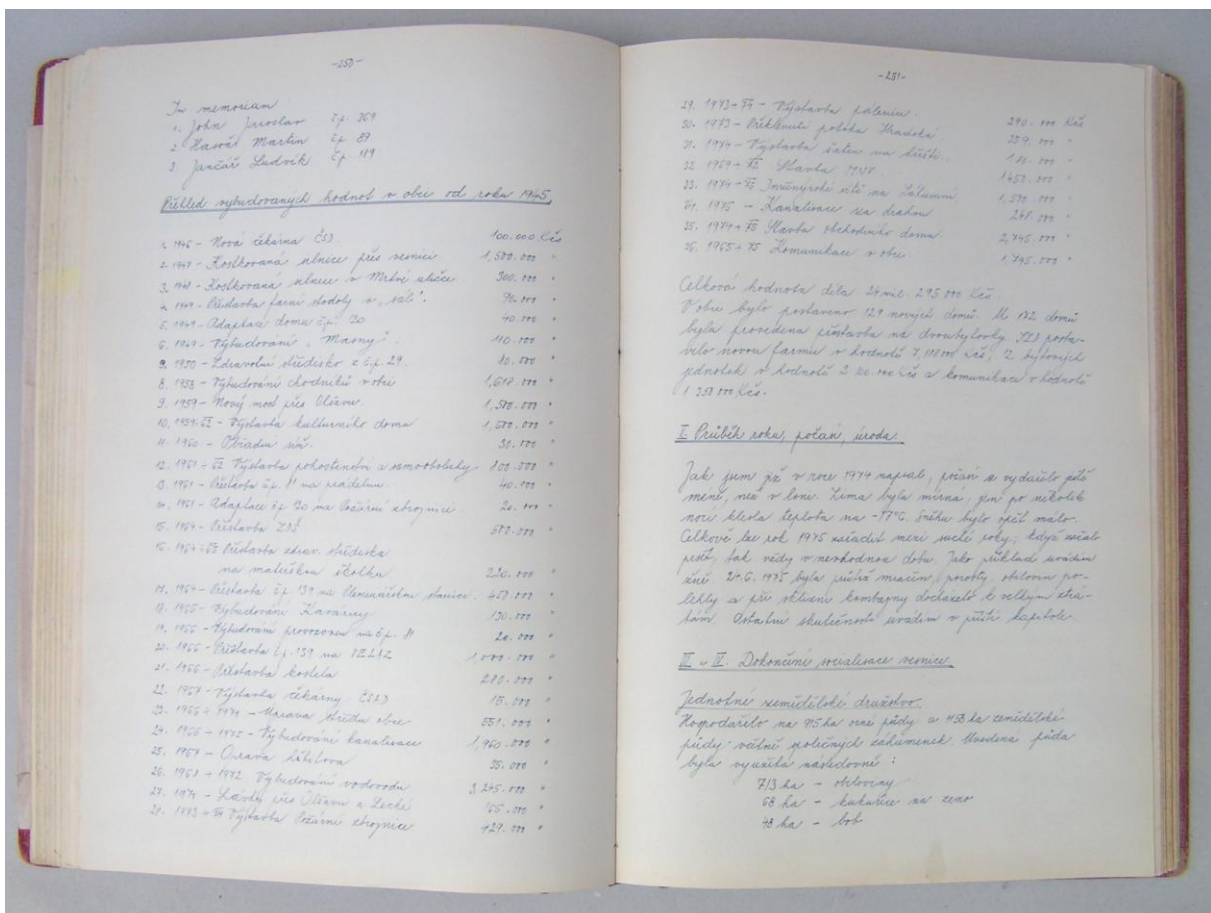 -250-
In memoriam
1. John Jaroslav č.p. 369
2. Hasoň Martin č.p. 87
3. Jančář Ludvík č.p. 189
Přehled vybudovaných hodnot v obci od roku 1945
1. 1946 - Nová čekárna ČSD. 100.000 Kčs
2. 1947 - Kostkovaná silnice přes vesnici 1,500.000 "
3. 1948 - Kostkovaná silnice v Mrtvé uličce 300.000 "
4. 1949 - Přestavba farní stodoly v "sál". 90.000 "
5. 1949 - Adaptace domu č.p. 120 40.000 "
6. 1949 - Vybudování "Masny". 110.000 "
7. 1950 - Zdravotní středisko z č.p. 29. 80.000 "
8. 1958 - Vybudování chodníků v obci 1,618.000 "
9. 1959 - Nový most přes Olšavu. 1,500.000 "
10. 1959-62 - Výstavba kulturního domu 1,600.000 "
11. 1960 - Obřadní síň. 30.000 "
12. 1961 ÷ 62 Výstavba pohostinství a samoobsluhy 800.000 "
13. 1961 - Přestavba č.p. 11 na prádelnu. 40.000 "
14. 1961 - Adaptace čp 90 na Požární zbrojnici. 20.000 "
15. 1964 - Přístavba ZDŠ 500.000 "
16. 1964 ÷ 65 Přestavba zdrav. střediska
na mateřskou školku 220.000 "
17. 1964 - Přestavba č.p. 139 na Veterinářskou stanici. 457.000 "
18. 1966 - Vybudování Kavárny 130.000 "
19. 1966 - Vybudování provozoven na č.p. 11 20.000 "
20. 1966 - Přestavba č.p. 139 na 1.000.000 "
21. 1966 - Přestavba kostela 280.000 "
22. 1967 - Výstavba čekárny ČSAD 15.000 "
23. 1966 ÷ 1974 - Úprava středu obce 551.000 "
24. 1966 - 1975 - Vybudování kanalisace 1,960.000 "
25. 1967 - Oprava hřbitova 35.000 "
26. 1968 ÷ 1972 Vybudování vodovodu 3,245.000 "
27. 1974 - Lávky přes Olšavu a 166.000 "
28. 1973 ÷ 74 Výstavba Požární zbrojnice 429.000 "
-251-
29. 1973 ÷ 74 - Výstavba pálenice. 290.000 Kčs
30. 1973 - Překlenutí potoka Hradská. 339.000 "
31. 1974 - Výstavba šaten na hřišti. 186.000 "
32. 1969 ÷ 72 Stavba MNV. 1,450.000 "
33. 1974 - 75 Inženýrské sítě na 1,500.000 "
34. 1975 - Kanalisace za drahou 268.000 "
35. 1974 ÷ 75 Stavba obchodního domu. 2,745.000 "
36. 1965 ÷ 75 Komunikace v obci. 1,745.000 "
Celková hodnota díla 24 mil. 295.000 Kčs.
V obci bylo postaveno 129 nových domů. U 182 domů
byla provedena přestavba na dvoubytovky. JZD posta-
vilo novou farmu v hodnotě Kčs, 12 bytových
jednotek v hodnotě Kčs a komunikace v hodnotě
1 350.000 Kčs.
II. Průběh roku, počasí, úroda.
Jak jsem již v roce 1974 napsal, počasí se vydařilo ještě
méně, než v loni. Zima byla mírná, jen po několik
nocí klesla teplota na -17°C. Sněhu bylo opět málo.
Celkově lze rok 1975 zařadit mezi suché roky; když začalo
pršet, tak vždy v nevhodnou dobu. Jako příklad uvádím
žně. 24.6. 1975 byla průtrž mračen, porosty obilovin po-
lehly a při sklizni kombajny docházelo k velkým ztrá-
tám. Ostatní skutečnosti uvádím v příští kapitole.
III. - IV. Dokončení socialisace vesnice.
Jednotné zemědělské družstvo.
Hospodařilo na 915 ha orné půdy a 1153 ha zemědělské
půdy - včetně společných záhumenek. Uvedená půda
byla využita následovně:
713 ha - obiloviny
68 ha - kukuřice na zrno
48 ha - bob